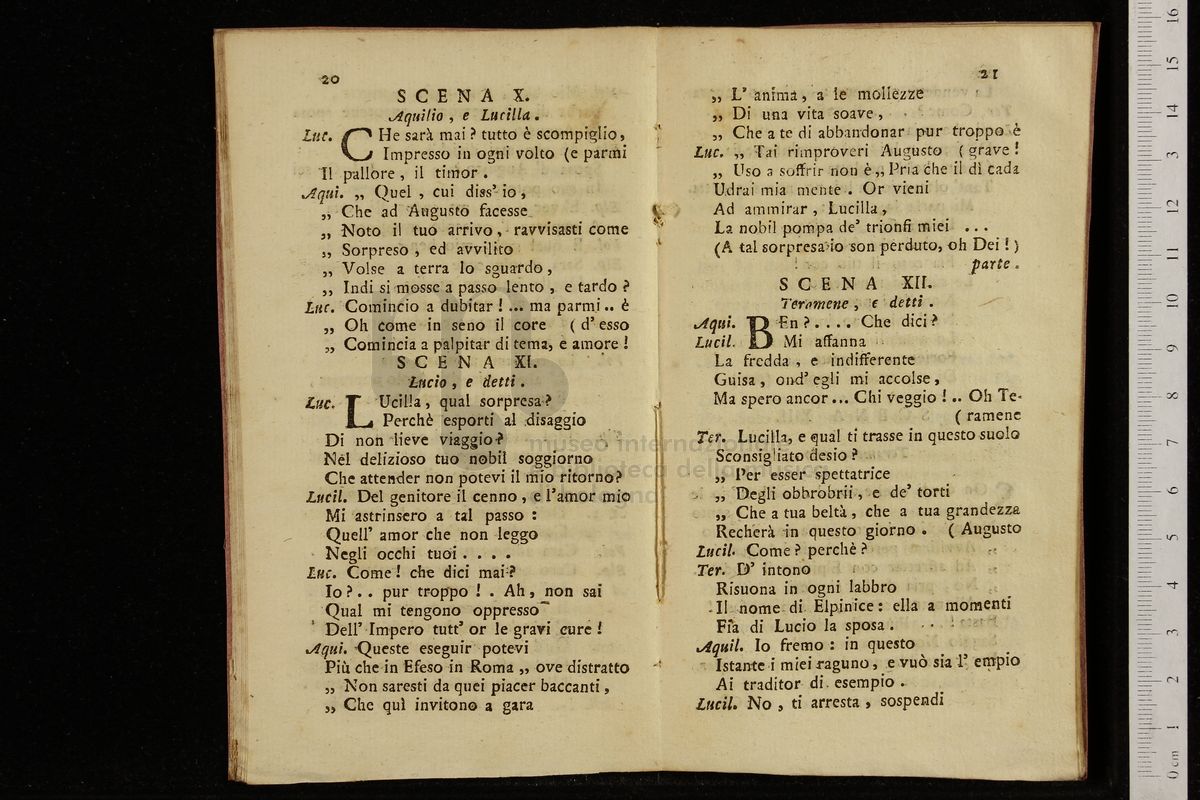 20
SCENA X.
Aquilio, e Lucilla.
Luc. CHe sarà mai? tutto è scompiglio,
Impresso in ogni volto (e parmi
Il pallore, il timor.
Aqui. „ Quel, cui diss' io,
„ Che ad Augusto facesse
„ Noto il tuo arrivo, ravvisasti come
„ Sorpreso, ed avvilito
„ Volse a terra lo sguardo,
„ Indi si mosse a passo lento, e tardo?
Luc. Comincio a dubitar!... ma parmi.. è
„ Oh come in seno il core (d' esso
„ Comincia a palpitar di tema, e amore!
SCENA XI.
Lucio, e detti.
Luc. LUcilla, qual sorpresa?
Perchè esporti al disaggio
Di non lieve viaggio?
Nel delizioso tuo nobil soggiorno
Che attender non potevi il mio ritorno?
Lucil. Del genitore il cenno, e l'amor mio
Mi astrinsero a tal passo:
Quell' amor che non leggo
Negli occhi tuoi....
Luc. Come! che dici mai?
Io?.. pur troppo!. Ah, non sai
Qual mi tengono oppresso
Dell' Impero tutt' or le gravi cure!
Aqui. Queste eseguir potevi
Più che in Efeso in Roma „ ove distratto
„ Non saresti da quei piacer baccanti,
„ Che quì invitono a gara
21
„ L' anima, a le mollezze
„ Di una vita soave,
„ Che a te di abbandonar pur troppo è
Luc. „ Tai rimproveri Augusto (grave!
„ Uso a soffrir non è „ Pria che il dì cada
Udrai mia mente. Or vieni
Ad ammirar, Lucilla,
La nobil pompa de' trionfi miei ...
(A tal sorpresa io son perduto, oh Dei!)
parte.
SCENA XII.
Teramene, e detti.
Aqui. BEn?.... Che dici?
Lucil. Mi affanna
La fredda, e indifferente
Guisa, ond' egli mi accolse,
Ma spero ancor... Chi veggio!.. Oh Te-
(ramene
Ter. Lucilla, e qual ti trasse in questo suolo
Sconsigliato desio?
„ Per esser spettatrice
„ Degli obbrobrii, e de' torti
„ Che a tua beltà, che a tua grandezza
Recherà in questo giorno. (Augusto
Lucil. Come? perchè?
Ter. D' intono
Risuona in ogni labbro
Il nome di Elpinice: ella a momenti
Fia di Lucio la sposa.
Aquil. Io fremo: in questo
Istante i miei raguno, e vuò sia l' empio
Ai traditor di esempio.
Lucil. No, ti arresta, sospendi
museo internazionale
biblioteca della musica
0 cm 1 2 3 4 5 6 7 8 9 10 11 12 13 14 15 16